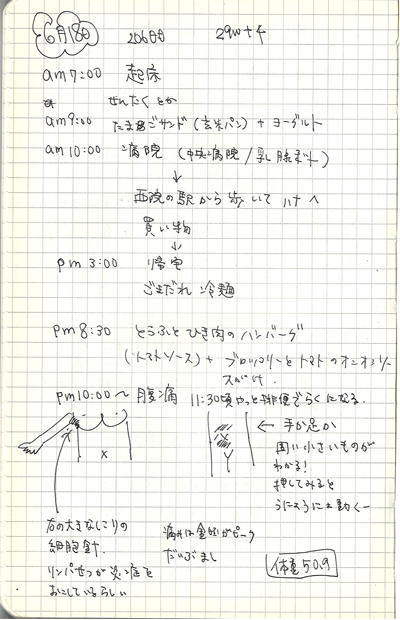 6月18日 206日目 29w+4
am7:00 起床
せんたくとか
am9:00 たまごサンド(玄米パン)+ヨーグルト
am10:00 病院 (中央病院/乳腺ギト)
↓
西院の駅から歩いてハナへ
買い物
↓
pm 3:00 帰宅
ごまだれ冷麺
pm8:30 とうふとひき肉のハンバーグ
(トマトソース)+ブロッコリーとトマトのオニオンソー
スがけ
pm10:00〜腹痛 11:30頃やっと排便でらくになる。
← 手か足か
固い小さいものが
わかる!
押してみると
うにょうにょ動くー
右の大きなしこりの
細胞針.
リンパせつが炎症を
おこしているらしい
痛みは金曜がピーク
だいぶまし
体重50.9